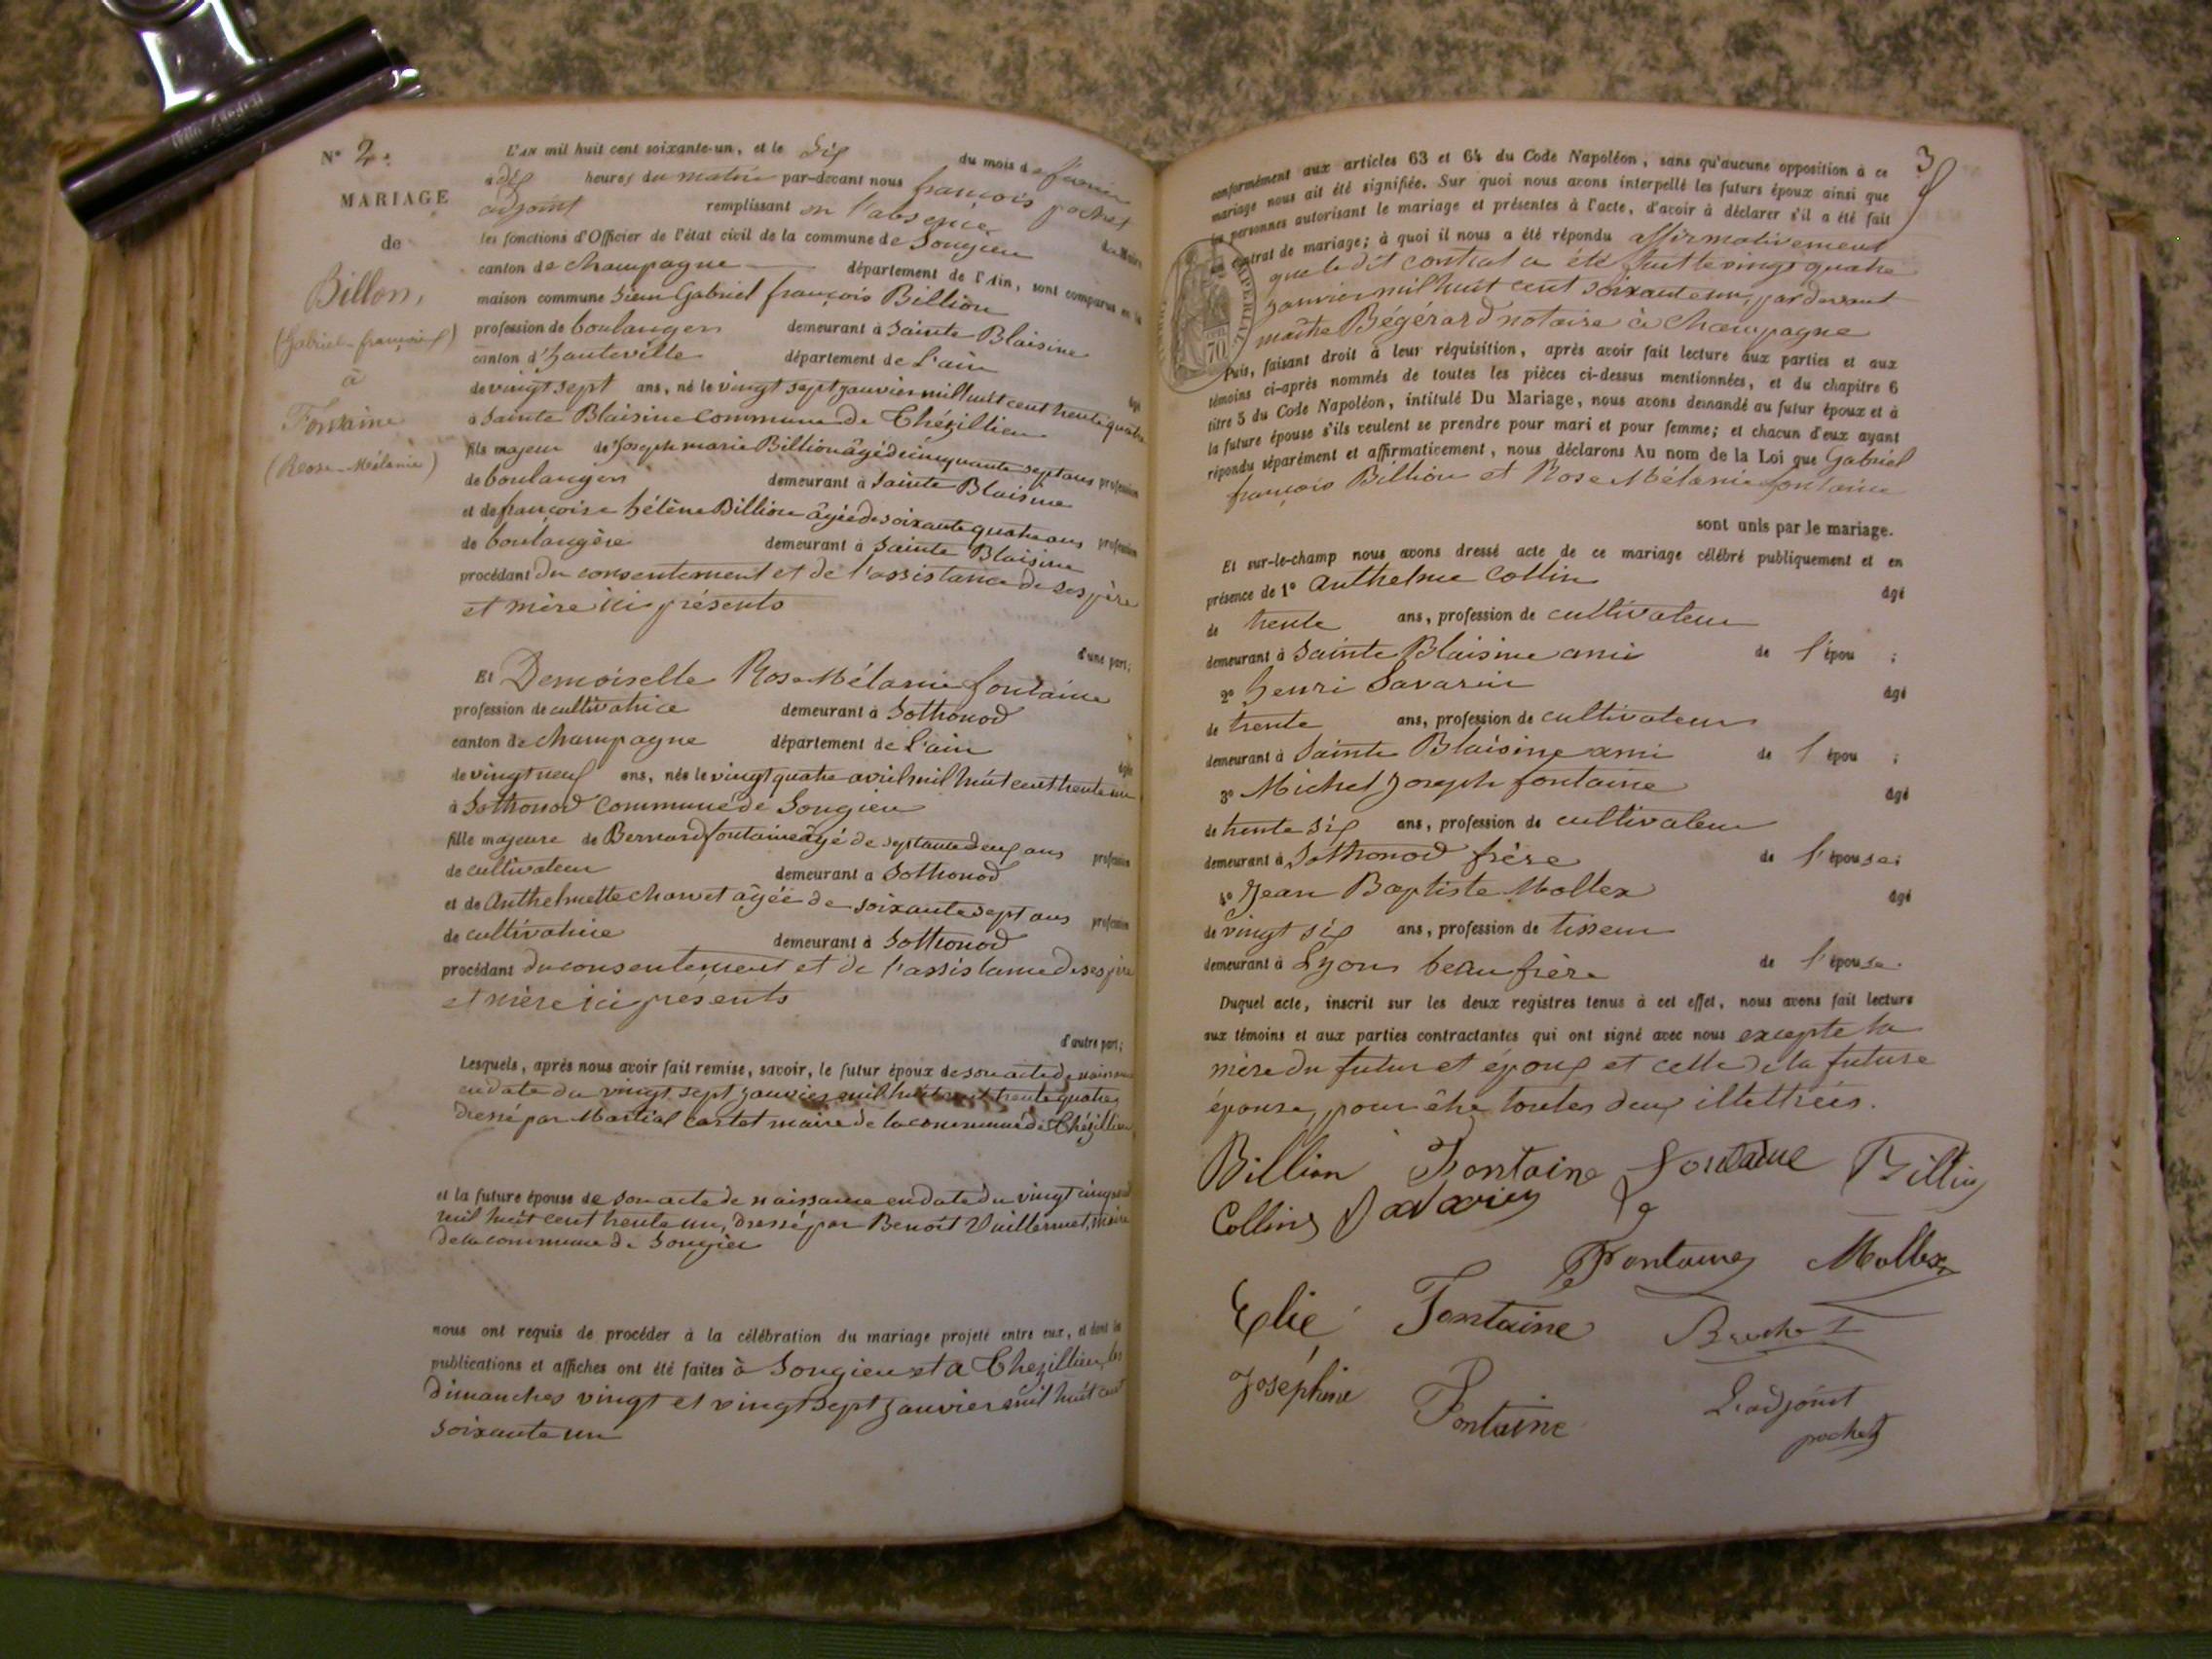 N° 2.
MARIAGE
de
Billon,
(Gabriel-françois)
à
Fontaine
(Rose-Mélanie)
L'AN mil huit cent soixante-un, et le Six du mois de février
à dix heures du matin par-devant nous françois pochet
adjoint remplissant en l'absence du Maire
les fonctions d'Officier de l'état civil de la commune de Songieu
canton de champagne département de l'Ain, sont comparus en la
maison commune Sieur Gabriel françois Billion
profession de boulanger demeurant à Sainte Blaisine
canton d'hauteville département de L'ain âgé
de vingt sept ans, né le vingt sept janvier mil huit cent trente quatre
à Sainte Blaisine commune de Thézillieu
fils majeur de Joseph marie Billion âgé de cinquante sept ans profession
de boulanger demeurant à Sainte Blaisine
et de françoise hélène Billion âgée de soixante quatre ans profession
de boulangère demeurant à Sainte Blaisine
procédant du consentement et de l'assistance de ses père
et mère ici présents
d'une part;
Et Demoiselle Rose Mélanie fontaine
profession de cultivatrice demeurant à Sothonod
canton de champagne département de L'ain âgée
de vingt neuf ans, née le vingt quatre avril mil huit cent trente un
à Sothonod commune de Songieu
fille majeure de Bernard fontaine âgé de septante deux ans profession
de cultivateur demeurant à Sothonod
et de Anthelmette charvet âgée de soixante sept ans profession
de cultivatrice demeurant à Sothonod
procédant du consentement et de l'assistance de ses père
et mère ici présents
d'autre part;
Lesquels, après nous avoir fait remise, savoir, le futur époux de son acte de naissance
en date du vingt sept janvier mil huit cent trente quatre,
dressé par Martial Cartet maire de la commune de Thézillieu
et la future épouse de son acte de naissance en date du vingt cinq avril
mil huit cent trente un, dressé par Benoît Vuillermet, maire
de la commune de Songieu
nous ont requis de procéder à la célébration du mariage projeté entre eux, et dont les
publications et affiches ont été faites à Songieu et à Thezillieu, les
dimanches vingt et vingt sept janvier mil huit cent
soixante un
3
conformément aux articles 63 et 64 du Code Napoléon, sans qu'aucune opposition à ce
mariage nous ait été signifiée. Sur quoi nous avons interpellé les futurs époux ainsi que
les personnes autorisant le mariage et présentes à l'acte, d'avoir à déclarer s'il a été fait
un contrat de mariage; à quoi il nous a été répondu affirmativement
que le dit contrat a été fait le vingt quatre
janvier mil huit cent soixante un, par devant
maître Bégérard notaire à Champagne
Puis, faisant droit à leur réquisition, après avoir fait lecture aux parties et aux
témoins ci-après nommés de toutes les pièces ci-dessus mentionnées, et du chapitre 6
titre 5 du Code Napoléon, intitulé Du Mariage, nous avons demandé au futur époux et à
la future épouse s'ils veulent se prendre pour mari et pour femme; et chacun d'eux ayant
répondu séparément et affirmativement, nous déclarons Au nom de la Loi que Gabriel
françois Billion et Rose Mélanie fontaine
sont unis par le mariage.
Et sur-le-champ nous avons dressé acte de ce mariage célébré publiquement et en
présence de 1° Anthelme Collin âgé
de trente ans, profession de cultivateur
demeurant à Sainte Blaisine ami de l'épou ;
2° henri Savarin âgé
de trente ans, profession de cultivateur
demeurant à Sainte Blaisine ami de l'épou ;
3° Michel Joseph fontaine âgé
de trente six ans, profession de cultivateur
demeurant à Sothonod frère de l'épouse;
4° Jean Baptiste Mollex âgé
de vingt six ans, profession de tisseur
demeurant à Lyon beau frère de l'épouse.
Duquel acte, inscrit sur les deux registres tenus à cet effet, nous avons fait lecture
aux témoins et aux parties contractantes qui ont signé avec nous excepté la
mère du futur et époux et celle de la future
épouse, pour être toutes deux illettrées.
Billion Fontaine Fontaine Billion
Collin Savarin
Fontaine Mollex
Elie Fontaine
Joséphine Fontaine
L'adjoint
pochet
70